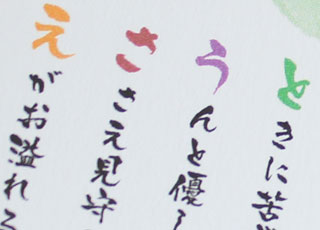 ときに苦
うんと優し
ささえ見守
えがお溢れる